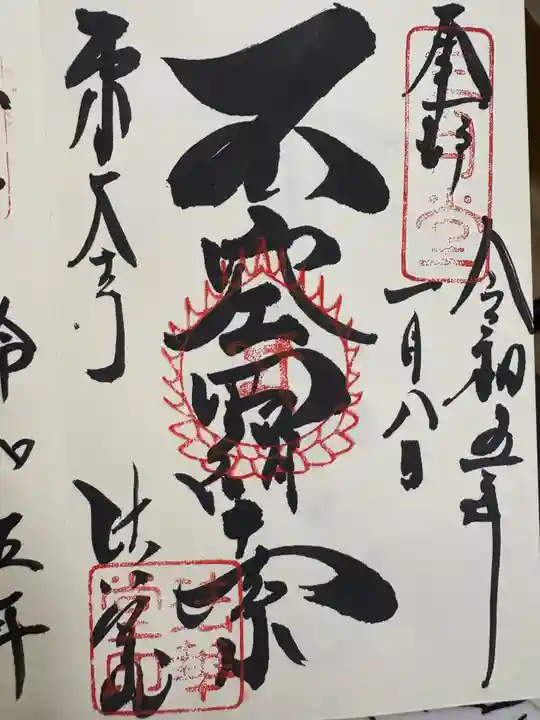 奉拝
三月堂
令和五年
一月八日
不空羂索
東大寺
法華堂
五年